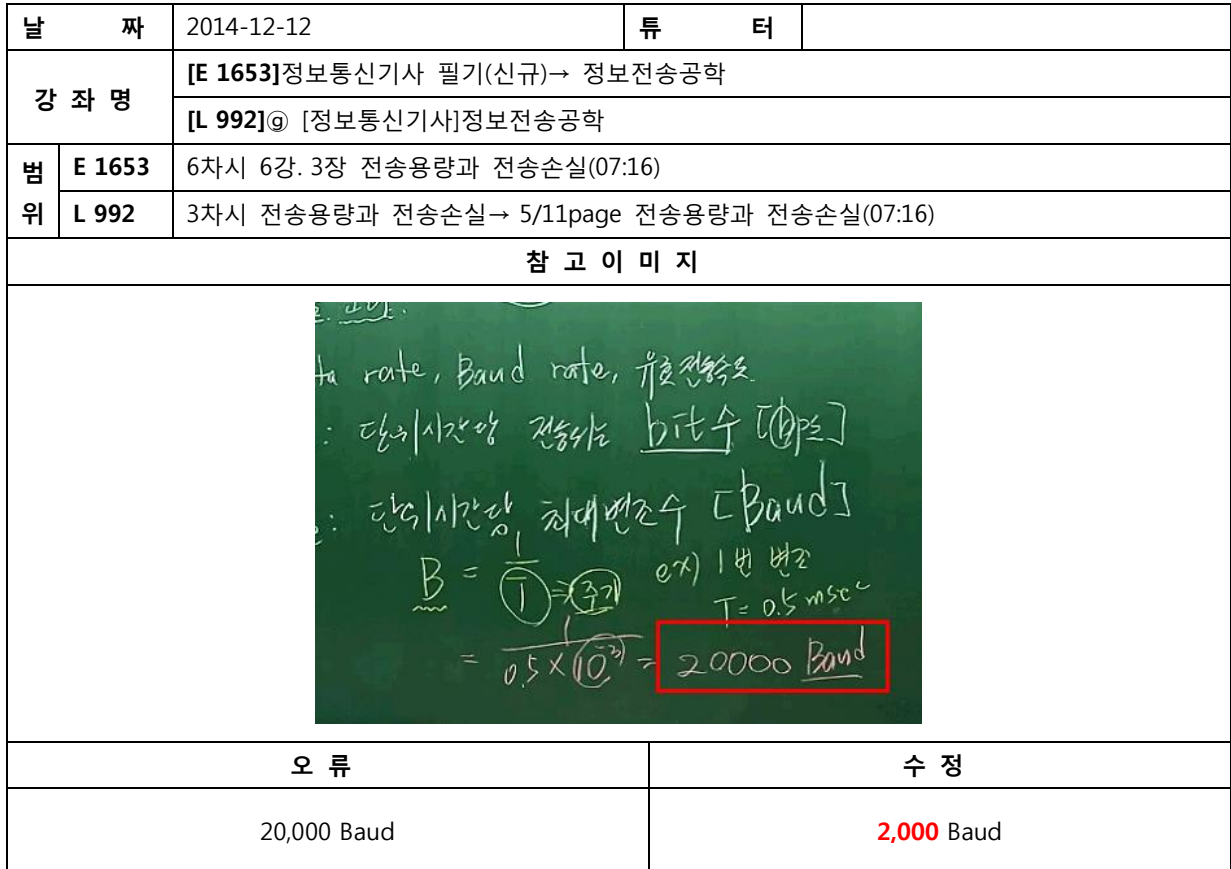 날 짜 2014-12-12 튜 터
강 좌 명
[E 1653]정보통신기사 필기(신규)→ 정보전송공학
[L 992]ⓖ [정보통신기사]정보전송공학
범위
E 1653 6차시 6강. 3장 전송용량과 전송손실(07:16)
L 992 3차시 전송용량과 전송손실→ 5/11page 전송용량과 전송손실(07:16)
참 고 이 미 지
ta rate, Baud rate, 유효전송속도
: 단위시간당 전송되는 bit수 [bps]
: 단위시간당 최대변조수 [Baud]
B = 1/T ⇒ 주기 ex) 1번 변조
T = 0.5 msec
= 1/0.5×10⁻³ = 20000 Baud
오 류 수 정
20,000 Baud 2,000 Baud